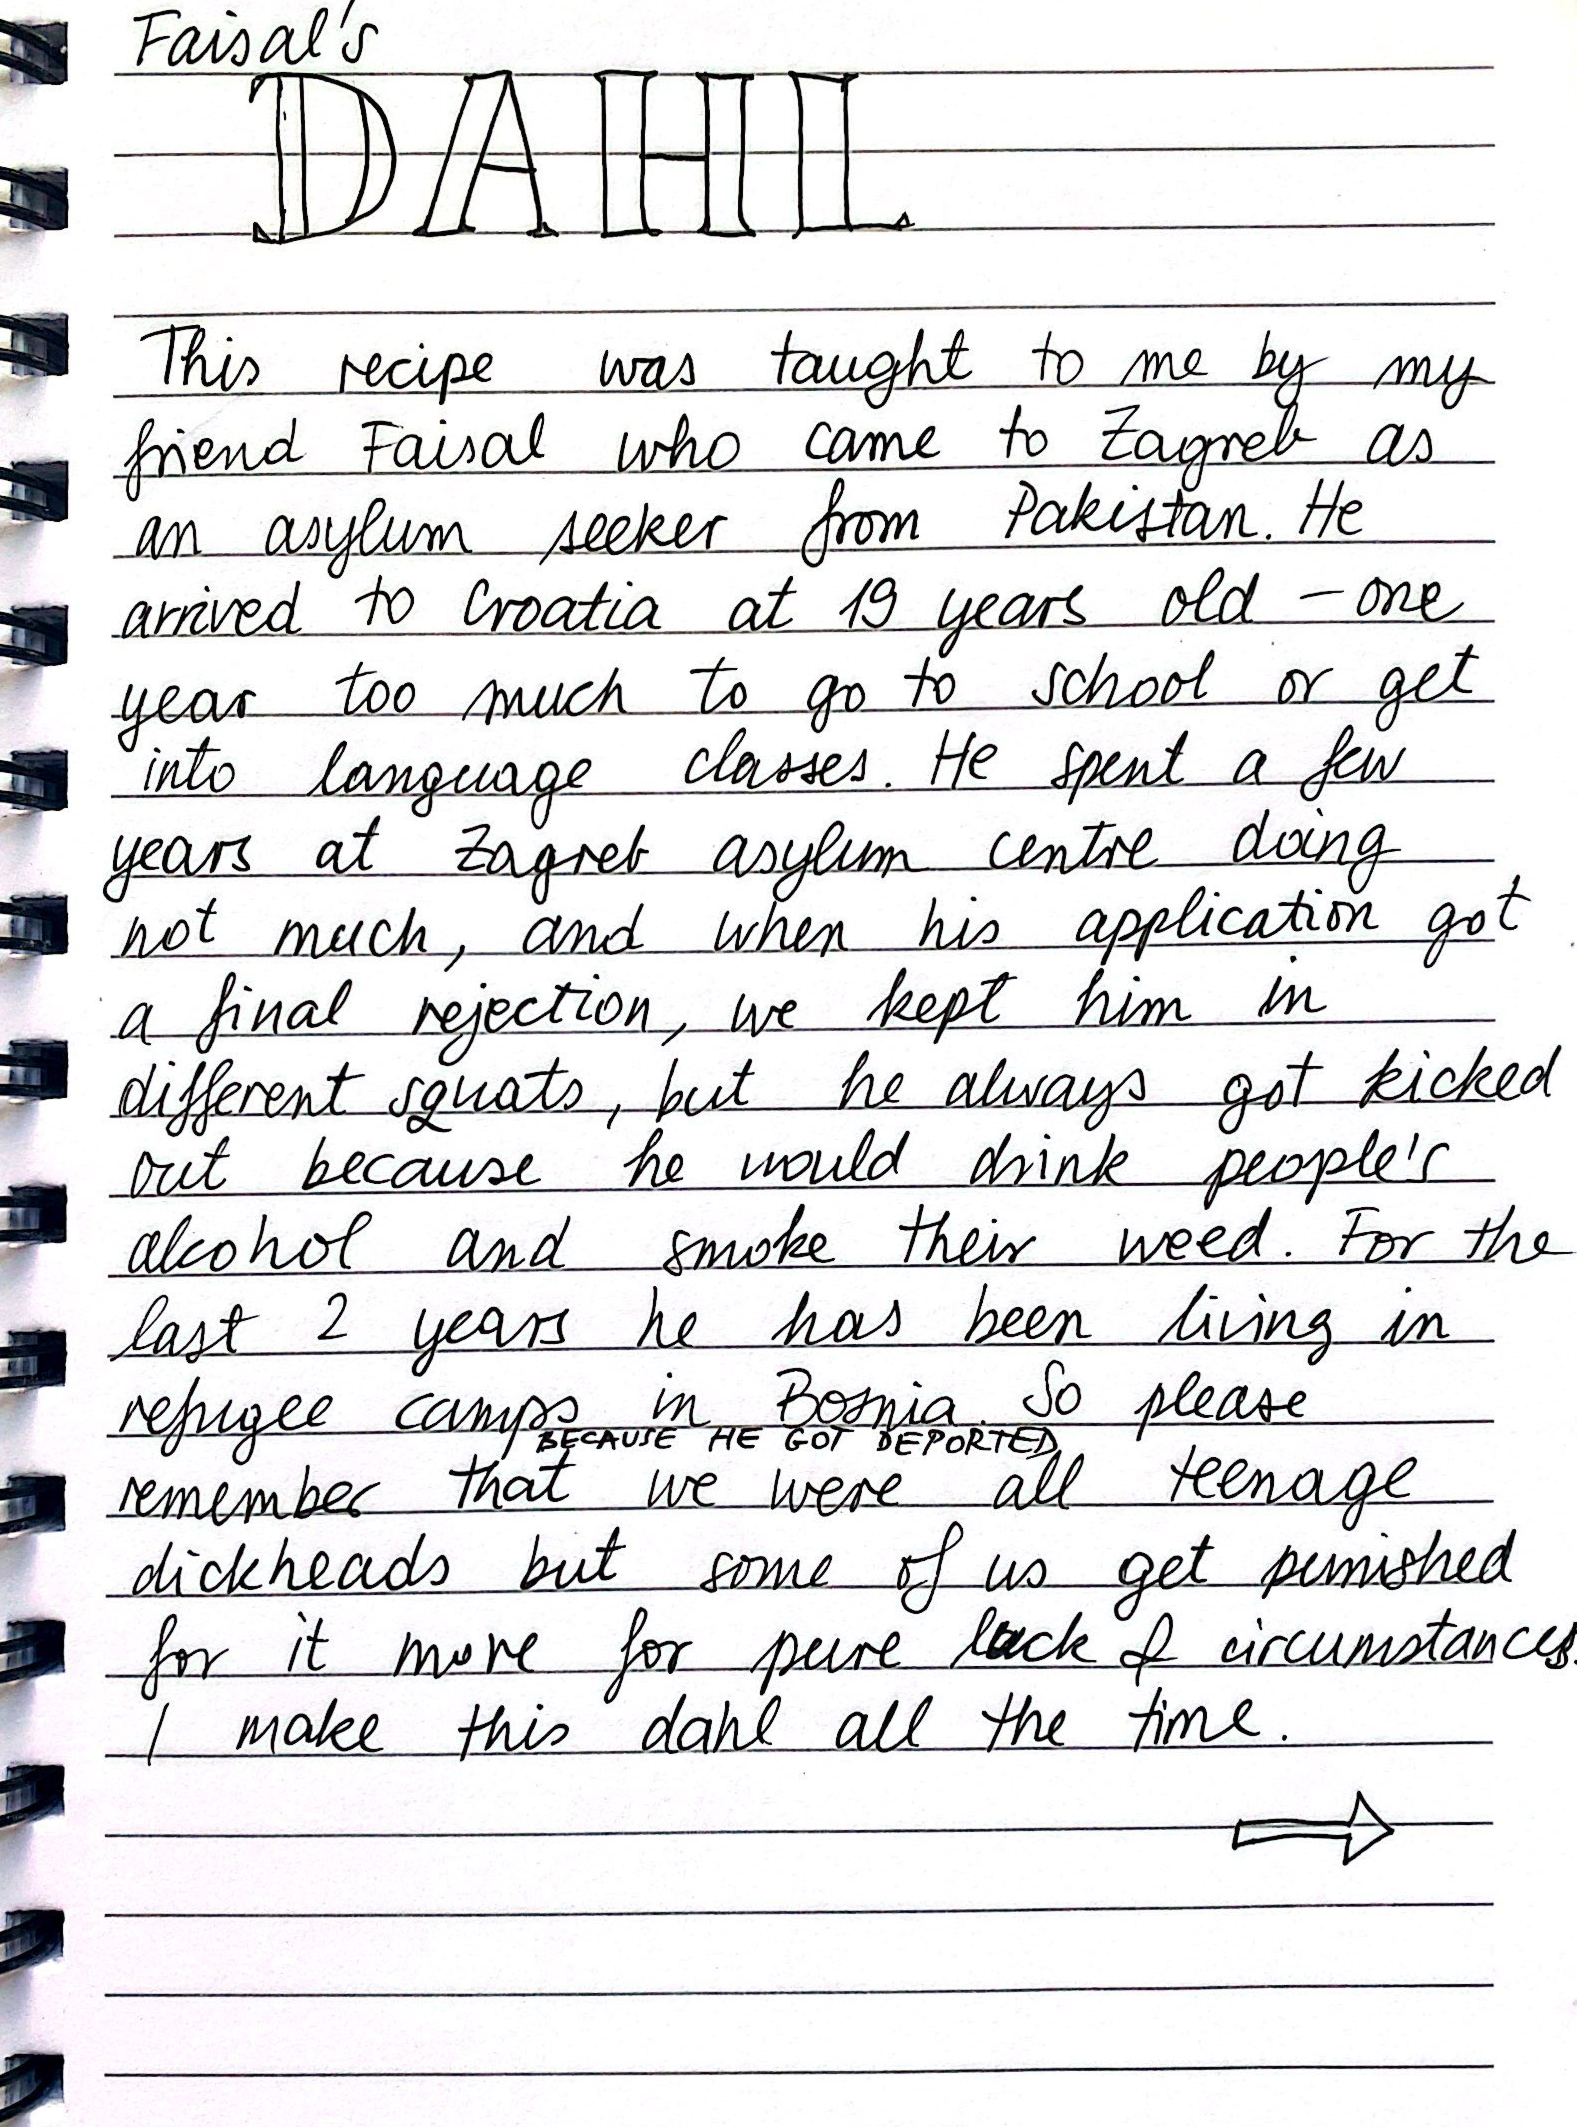 Faisal's
DAHL
This recipe was taught to me by my
friend Faisal who came to Zagreb as
an asylum seeker from Pakistan. He
arrived to Croatia at 19 years old – one
year too much to go to school or get
into language classes. He spent a few
years at Zagreb asylum centre doing
not much, and when his application got
a final rejection, we kept him in
different squats, but he always got kicked
out because he would drink people's
alcohol and smoke their weed. For the
last 2 years he has been living in
refugee camps in Bosnia. So please
BECAUSE HE GOT DEPORTED
remember that we were all teenage
dickheads but some of us get punished
for it more for pure luck & circumstances.
I make this dahl all the time.